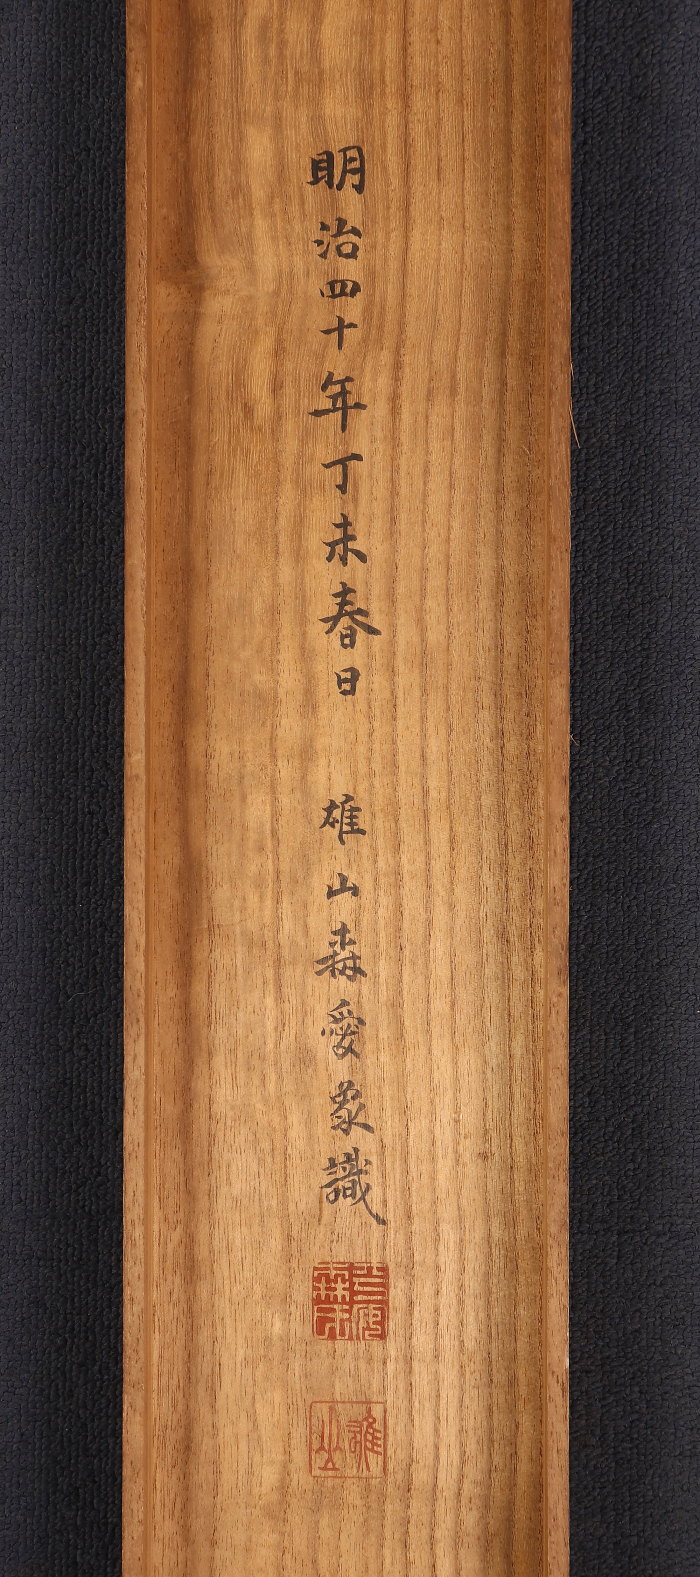 明治四十年丁未春日　雄山森愛象識
雄山